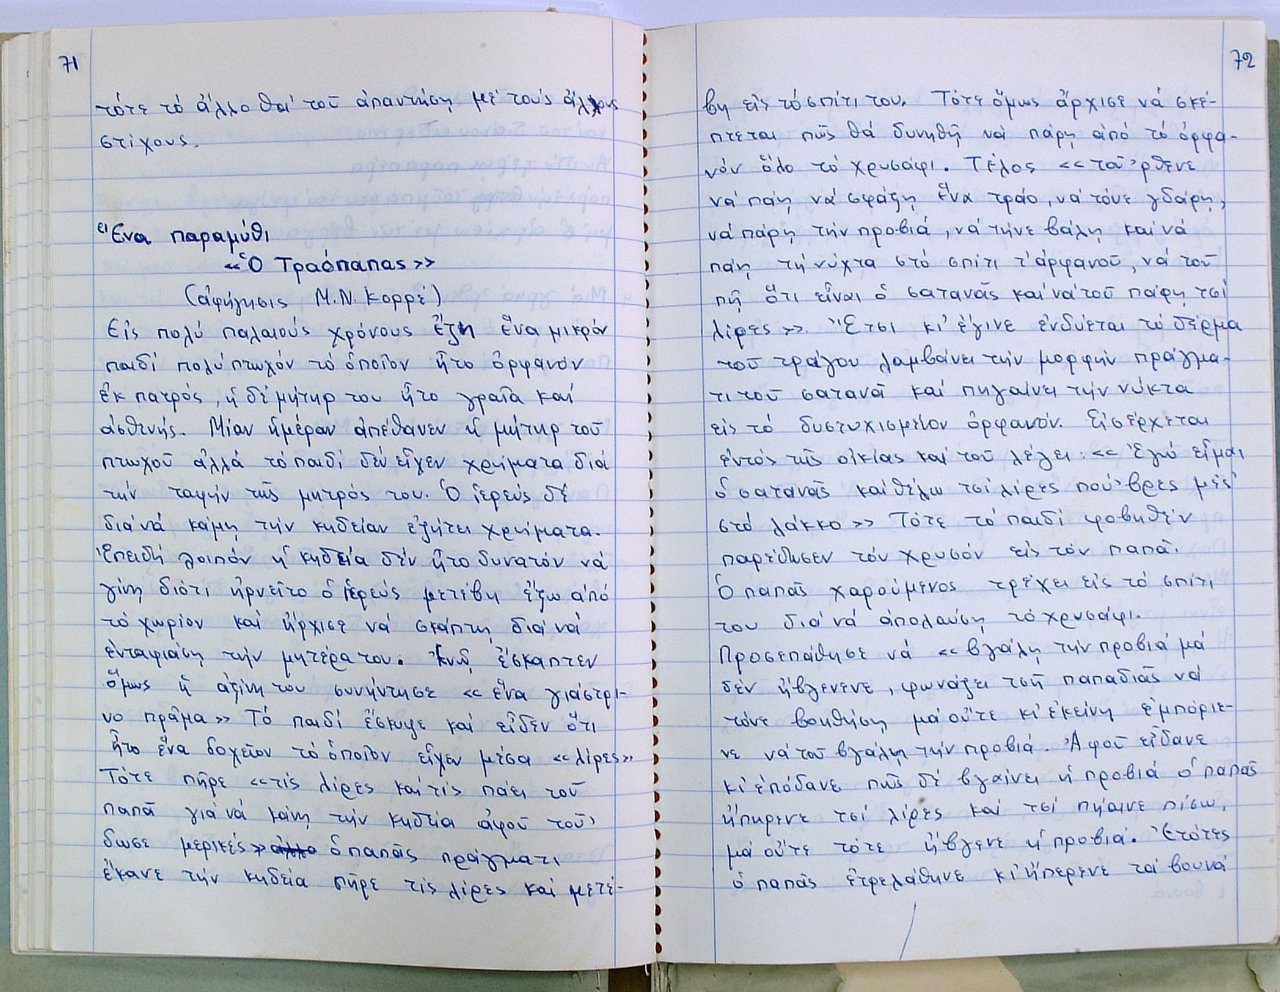 71
τότε τό ἄλλο θά τοῦ ἀπαντήση μέ τούς ἄλλους
στίχους.
Ἕνα παραμύθι
«Ὁ Τραόπαπας»
(ἀφήγησις Μ.Ν. Κορρέ)
Εἰς πολύ παλαιούς χρόνους ἔζη ἕνα μικρόν
παιδί πολύ πτωχόν τό ὁποῖον ἦτο ὀρφανόν
ἐκ πατρός, ἡ δέ μήτηρ του ἦτο γραῖα καί
ἀσθενής. Μίαν ἡμέραν ἀπέθανεν ἡ μήτηρ τοῦ
πτωχοῦ ἀλλά τό παιδί δέν εἶχεν χρήματα διά
τήν ταφήν τῆς μητρός του. Ὁ ἱερεύς δέ
διά νά κάμη τήν κηδείαν ἐζήτει χρήματα.
Ἐπειδή λοιπόν ἡ κηδεία δέν ἦτο δυνατόν νά
γίνη διότι ἠρνεῖτο ὁ ἱερεύς μετέβη ἔξω ἀπό
τό χωρίον καί ἤρχισε νά σκάπτη διά νά
ἐνταφιάση τήν μητέρα του. Ἐνῶ ἔσκαπτεν
ὅμως ἡ ἀξίνη του συνήντησε «ἕνα γιάστρι-
νο πρᾶμα» Τό παιδί ἔσκυψε καί εἶδεν ὅτι
ἦτο ἕνα δοχεῖον τό ὁποῖον εἶχεν μέσα «λίρες»
Τότε πῆρε «τίς λίρες καί τίς πάει τοῦ
παπᾶ γιά νά κάνη τήν κηδεία ἀφοῦ τοῦ'
δωσε μερικές» ὁ παπᾶς πράγματι
ἔκανε τήν κηδεία πῆρε τίς λίρες καί μετέ-
72
βη εἰς τό σπίτι του. Τότε ὅμως ἄρχισε νά σκέ-
πτεται πῶς θά δυνηθῆ νά πάρη ἀπό τό ὀρφα-
νόν ὅλο τό χρυσάφι. Τέλος «τοῦ 'ρθενε
νά πάη νά σφάξη ἕνα τράο, νά τόνε γδάρη,
νά πάρη τήν προβιά, νά τήνε βάλη καί νά
πάη τή νύχτα στό σπίτι τ' ἀρφανοῦ, νά τοῦ
πῆ ὅτι εἶναι ὁ σατανᾶς καί νά τοῦ πάρη τσί
λίρες». Ἔτσι κι' ἔγινε ἐνδύεται τό δέρμα
τοῦ τράγου λαμβάνει τήν μορφήν πράγμα-
τι τοῦ σατανᾶ καί πηγαίνει τήν νύκτα
εἰς τό δυστυχισμένον ὀρφανόν. Εἰσέρχεται
ἐντός τῆς οἰκίας καί τοῦ λέγει: «Ἐγώ εἶμαι
ὁ σατανᾶς καί θέλω τσί λίρες πού 'βρες μές'
στό λάκκο» Τότε τό παιδί φοβηθέν
παρέδωσεν τόν χρυσόν εἰς τόν παπᾶ.
Ὁ παπᾶς χαρούμενος τρέχει εἰς τό σπίτι
του διά νά ἀπολαύση τό χρυσάφι.
Προσεπάθησε νά «βγάλη τήν προβιά μά
δέν ἤβγενενε, φωνάζει τσῆ παπαδιᾶς νά
τόνε βοηθήση μά οὔτε κι' ἐκείνη ἐμπόριε-
νε νά τοῦ βγάλη τήν προβιά. Ἀφοῦ εἴδανε
κι' ἐπόδανε πῶς δέ βγαίνει ἡ προβιά ὁ παπᾶς
ἤπηρενε τσί λίρες καί τσί πήαινε πίσω,
μά οὔτε τότε ἤβγενε ἡ προβιά. Ἐτότες
ὁ παπᾶς ἐτρελάθηνε κι' ἤπερενε τά βουνά